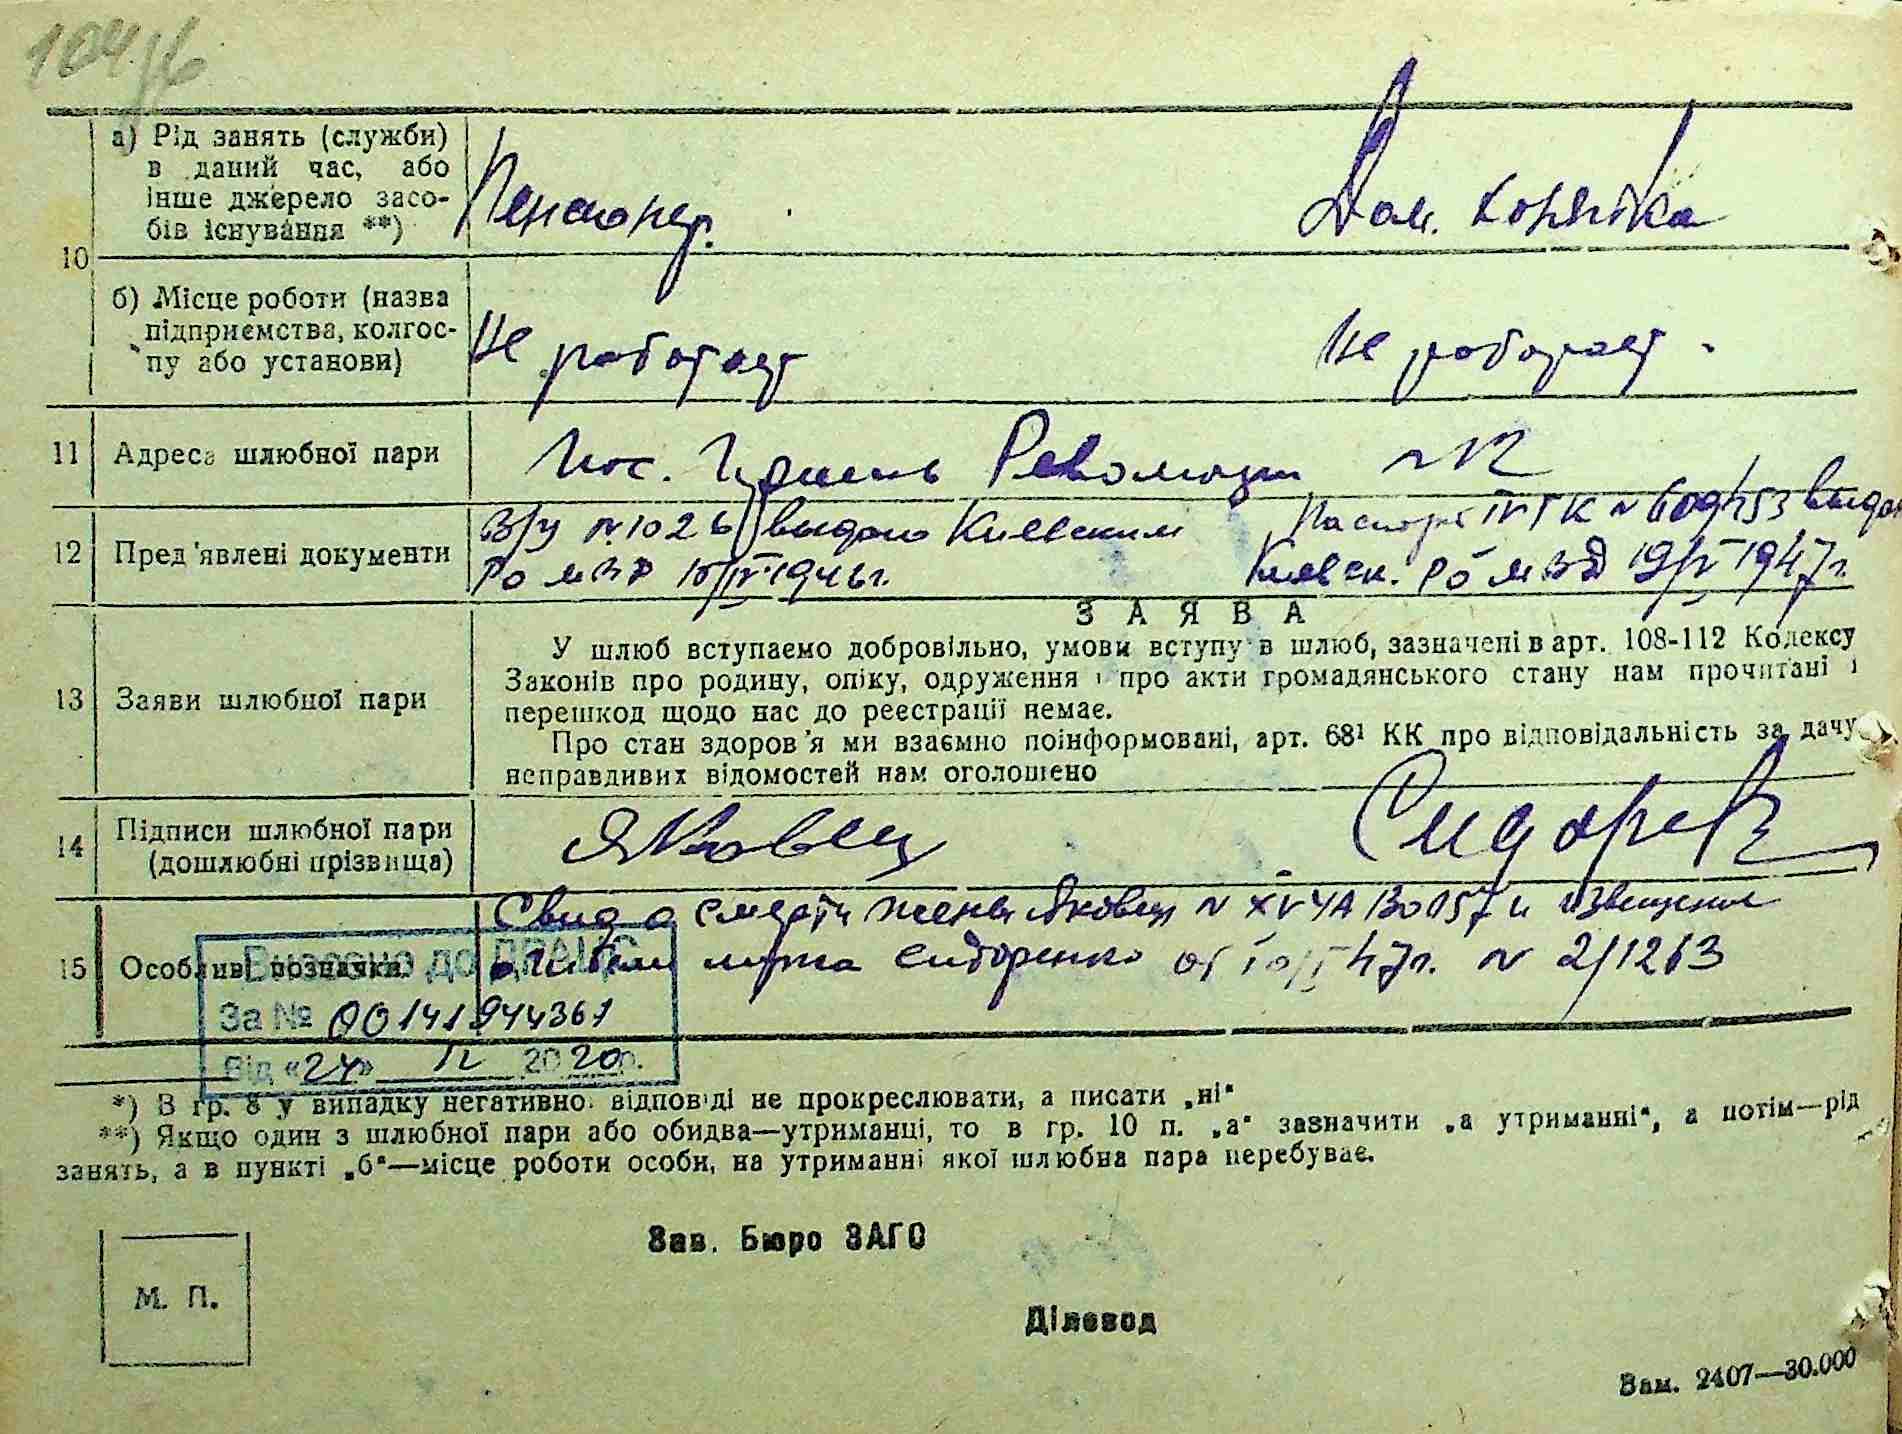 а) Рід занять (служби)
в даний час, або
інше джерело засо-
бів існування **)
Пенсионер.
Дом. хозяйка
10
б) Місце роботи (назва
підприємства, колгос-
пу або установи)
Не работает
Не работает.
11 Адреса шлюбної пари
пос. Революции №12
12 Пред'явлені документи
В/У №1026 выдано Киевским
РО МВД 10/IV 1946г.
Паспорт IV ГК № 609453 выдан
Киевск. РО МВД 19/IV 1947г.
ЗАЯВА
13 Заяви шлюбної пари
У шлюб вступаємо добровільно, умови вступу в шлюб, зазначені в арт. 108-112 Кодексу
Законів про родину, опіку, одруження і про акти громадянського стану нам прочитані і
перешкод щодо нас до реєстрації немає.
Про стан здоров'я ми взаємно поінформовані, арт. 68¹ КК про відповідальність за дачу
неправдивих відомостей нам оголошено
14 Підписи шлюбної пари
(дошлюбні прізвища)
Яковец
Сидорен
15 Особливі позначки.
Свид о смерти жены Яковец № XV УА 130157 и извещение
о гибели мужа Сидоренко от 47г. № 2/1263
Внесено до ДРАЦС
За № 00141944361
Від «24» IV 2020р.
*) В гр. 8 у випадку негативної відповіді не прокреслювати, а писати „ні“
**) Якщо один з шлюбної пари або обидва—утриманці, то в гр. 10 п. „а“ зазначити „а утриманні“, а потім—рід
занять, а в пункті „б“—місце роботи особи, на утриманні якої шлюбна пара перебуває.
Зав. Бюро ЗАГС
М. П.
Діловод
Зам. 2407—30.000